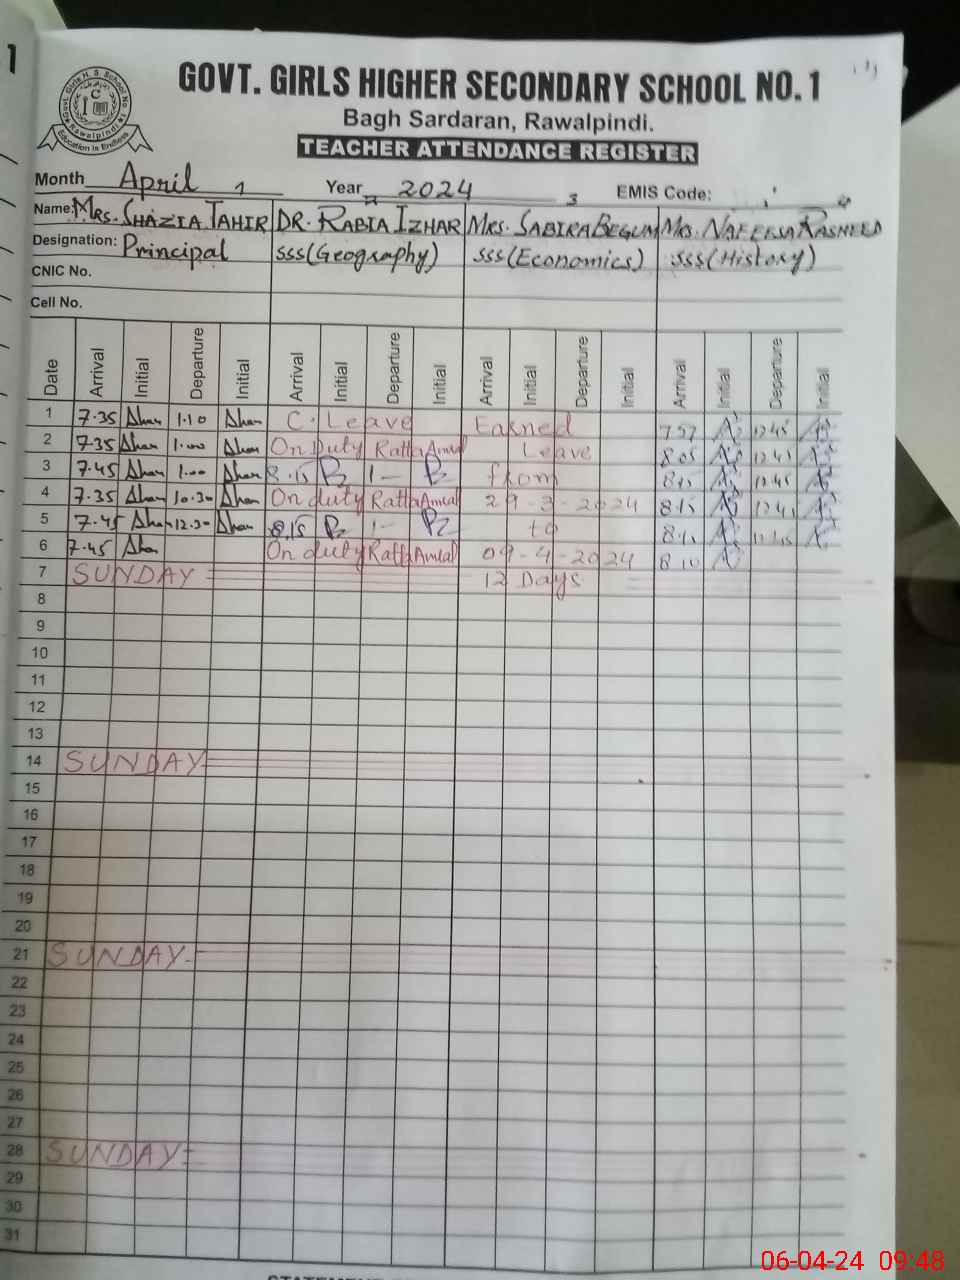 1
GOVT. GIRLS HIGHER SECONDARY SCHOOL NO. 1
Bagh Sardaran, Rawalpindi.
TEACHER ATTENDANCE REGISTER
Month April 1 Year 2 2024 3 EMIS Code: 4
Name: MRS. SHAZIA TAHIR DR. RABIA IZHAR MRS. SABIRA BEGUM MRS. NAFEESA RASHEED
Designation: Principal SSS(Geography) SSS(Economics) SSS(History)
CNIC No.
Cell No.
Date Arrival Initial Departure Initial Arrival Initial Departure Initial Arrival Initial Departure Initial Arrival Initial Departure Initial
1 7.35 1.10 C. Leave Earned 7 57 12 45
2 7.35 1.00 On Duty Ratta Amral Leave 8 05 12 45
3 7.45 1.00 8.15 1- from 8 15 12 45
4 7.35 10.30 On duty Ratta Amral 29-3-2024 8 15 12 45
5 7.45 12.30 8.15 1- to
6 7.45 On duty Ratta Amral 09-4-2024 8 10
7 SUNDAY 12 Days
8
9
10
11
12
13
14 SUNDAY
15
16
17
18
19
20
21 SUNDAY
22
23
24
25
26
27
28 SUNDAY
29
30
31
06-04-24 09:48